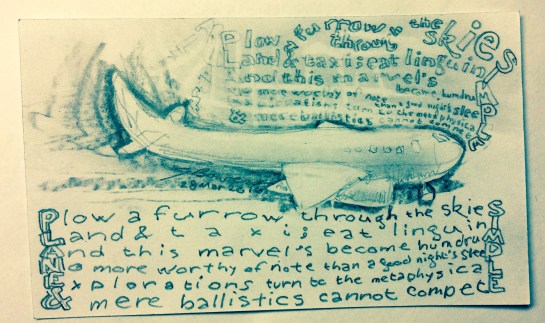 Plow a furrow through the skieS
Land & taxi; eat linguinI
And this marvel's become humdruM
No more worthy of note than a good night's sleeP
Explorations turn to the metaphysicaL
& mere ballistics cannot competE
28 Mar 2016
Plow a furrow through the skieS
Land & taxi; eat linguinI
And this marvel's become humdruM
No more worthy of note than a good night's sleeP
Explorations turn to the metaphysicaL
& mere ballistics cannot competE